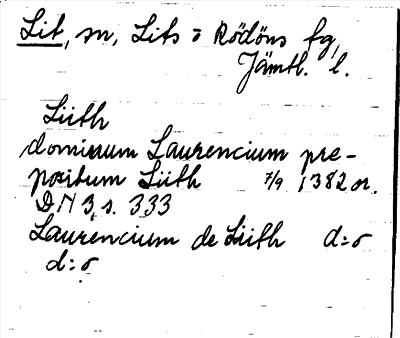 Lit, sn, Lits o Rödöns fg,
Jämtl. l.
Liith
dominum Laurencium pre-
positum Liith 7/9 1382 or.
DN 3, s. 333
Laurencium de Liith d:o
d:o